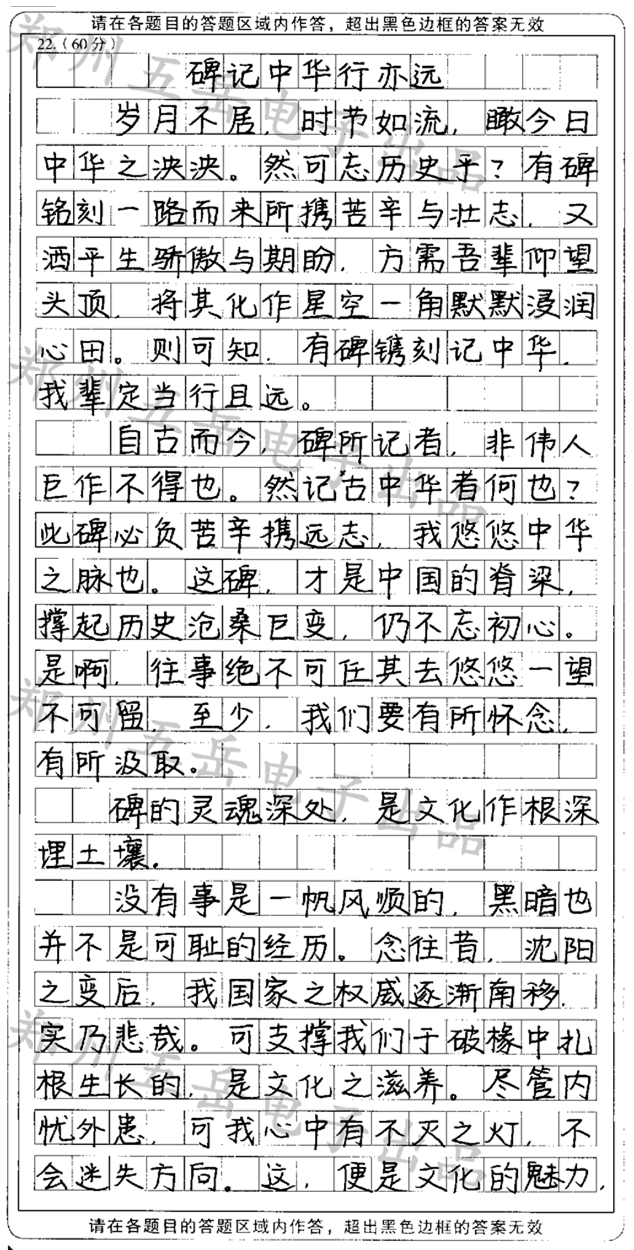 请在各题目的答题区域内作答，超出黑色边框的答案无效
22.（60分）
碑记中华行亦远
岁月不居，时节如流，瞰今日
中华之泱泱。然可忘历史乎？有碑
铭刻一路而来所携苦辛与壮志，又
洒平生骄傲与期盼，方需吾辈仰望
头顶，将其化作星空一角默默浸润
心田。则可知，有碑镌刻记中华，
我辈定当行且远。
自古而今，碑所记者，非伟人
巨作不得也。然记古中华者何也？
此碑必负苦辛携远志，我悠悠中华
之脉也。这碑，才是中国的脊梁，
撑起历史沧桑巨变，仍不忘初心。
是啊，往事绝不可任其去悠悠一望
不可留，至少，我们要有所怀念，
有所汲取。
碑的灵魂深处，是文化作根深
埋土壤。
没有事是一帆风顺的，黑暗也
并不是可耻的经历。念往昔，沈阳
之变后，我国家之权威逐渐南移，
实乃悲哉。可支撑我们于破椽中扎
根生长的，是文化之滋养。尽管内
忧外患，可我心中有不灭之灯，不
会迷失方向。这，便是文化的魅力，
请在各题目的答题区域内作答，超出黑色边框的答案无效
郑州五岳电子出品
郑州五岳电子出品
郑州五岳电子出品
郑州五岳电子出品